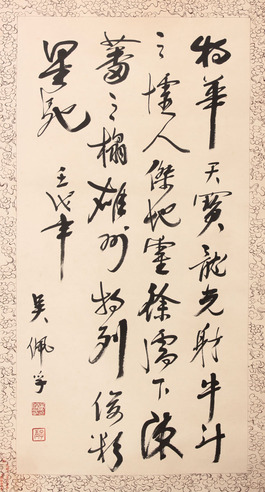 物華天寶龍光射牛斗
之墟人傑地靈徐孺下陳
蕃之榻雄州列俊彩
星馳
壬戌年
吳佩孚